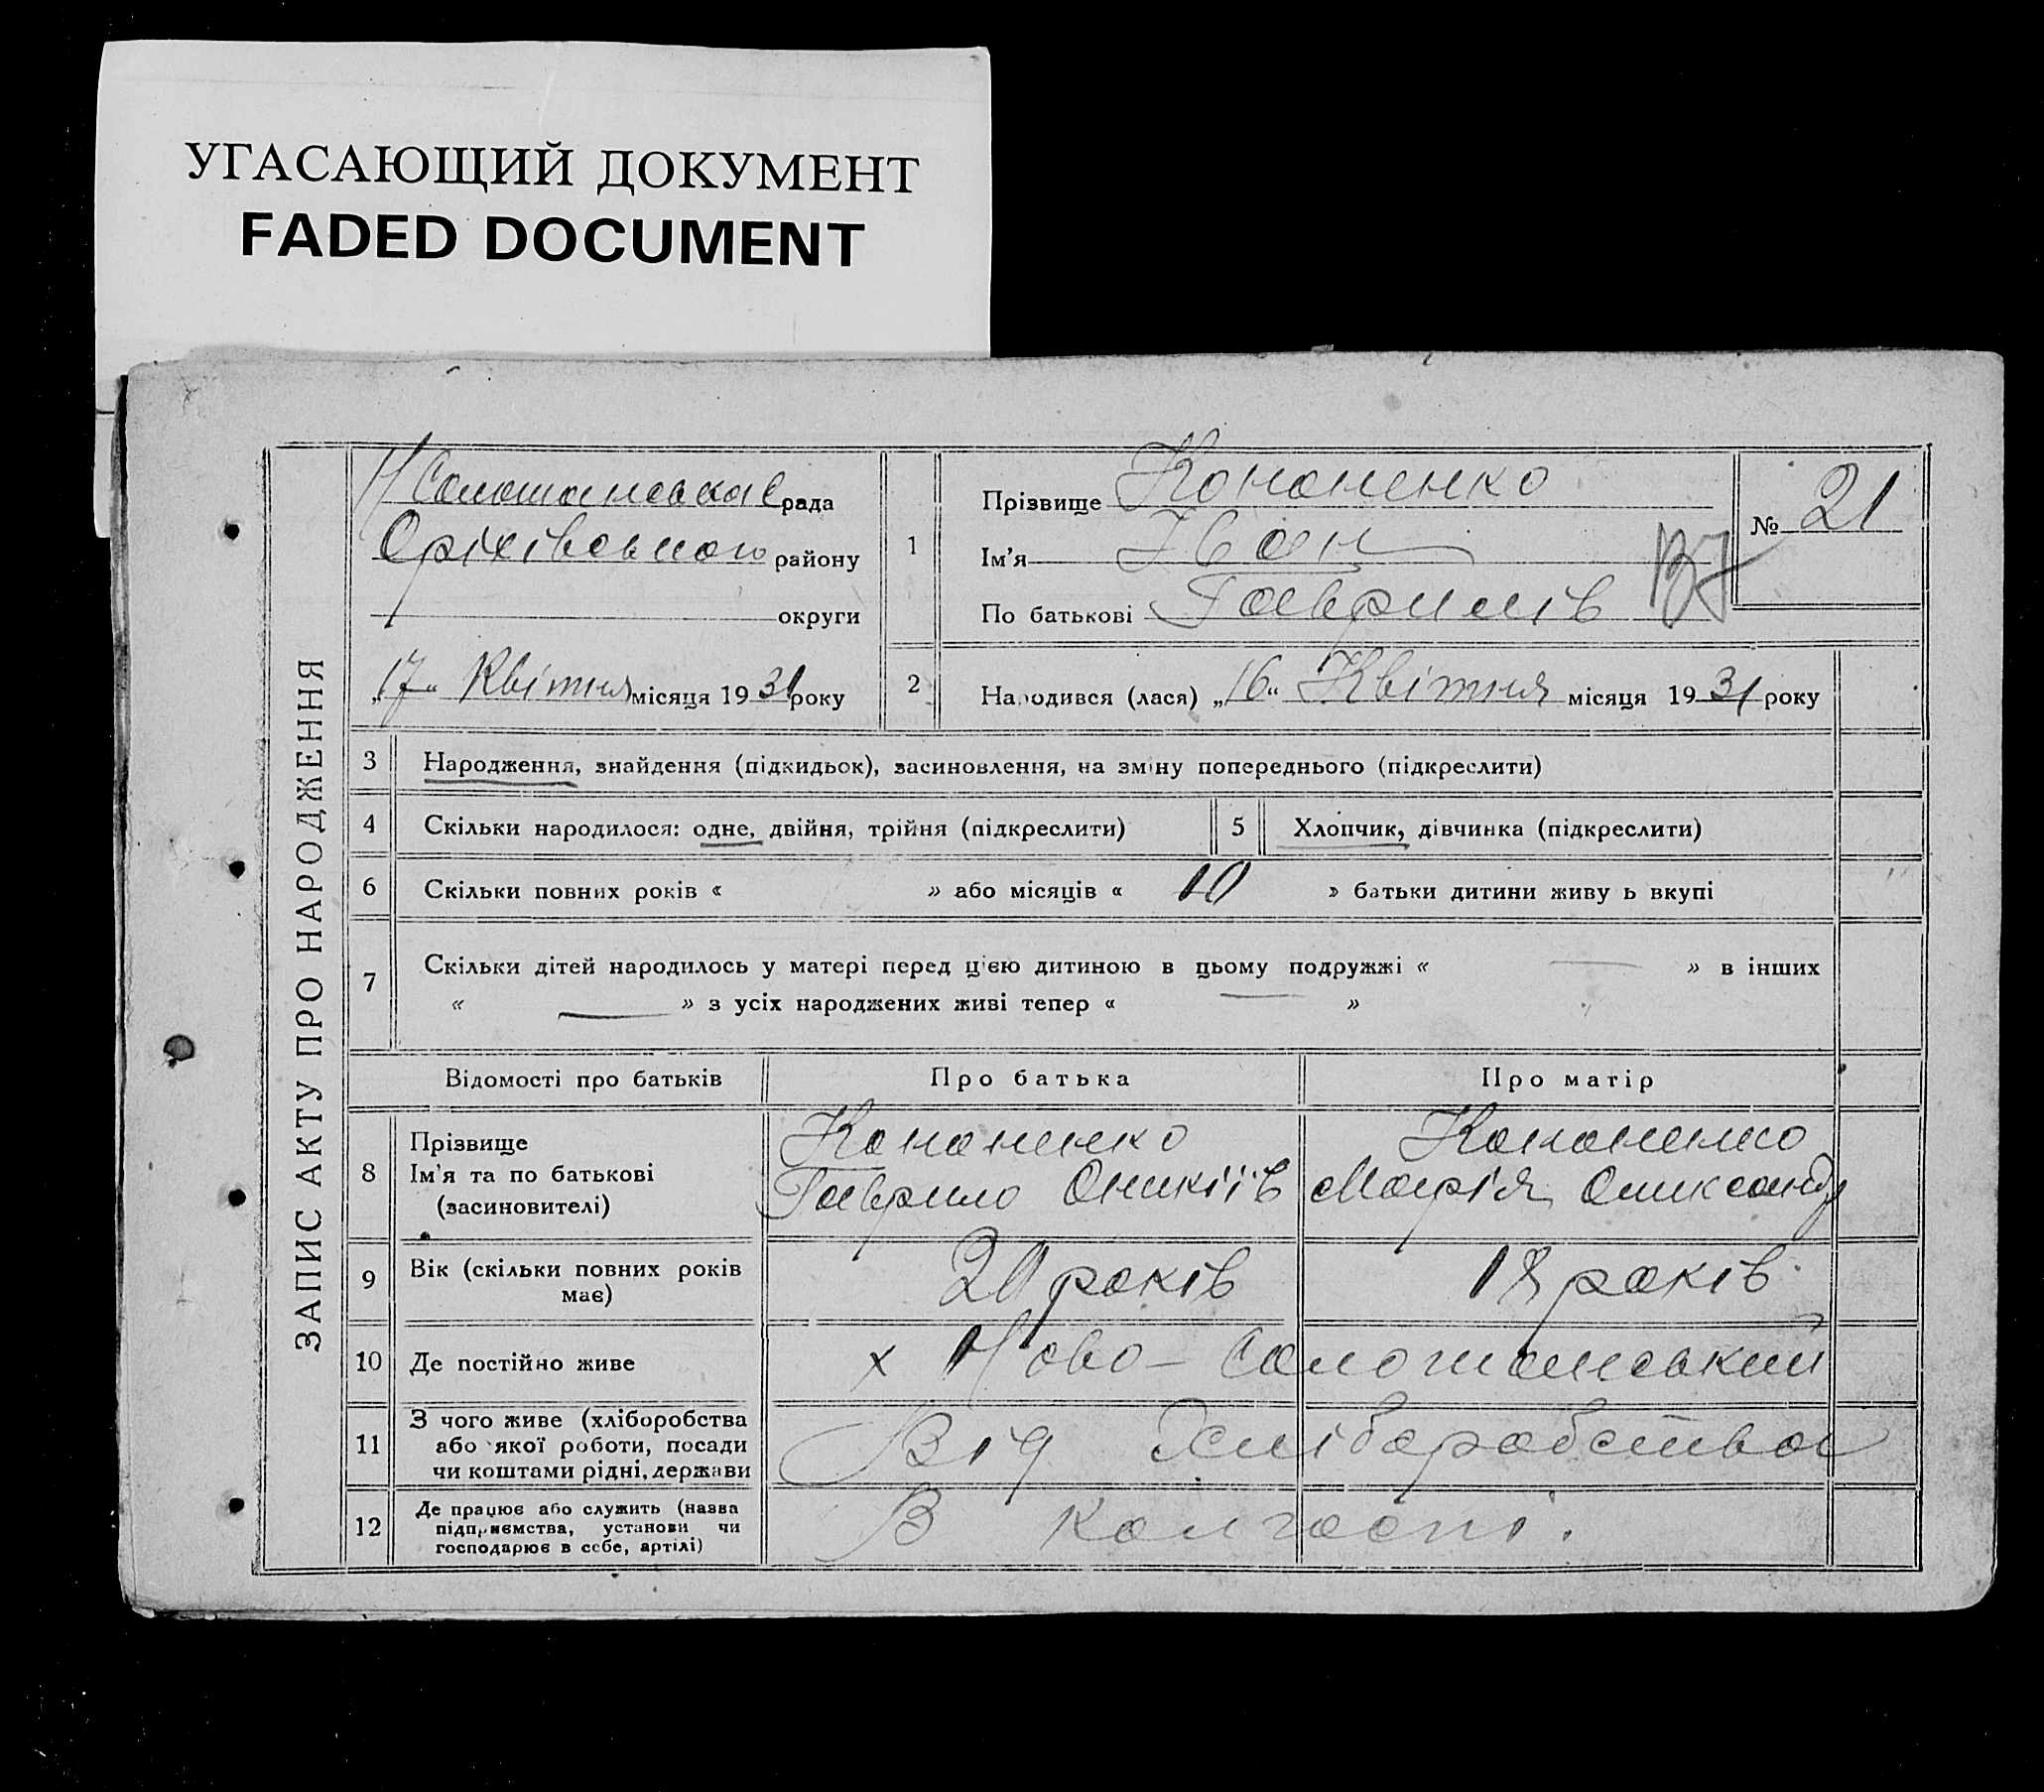 УГАСАЮЩИЙ ДОКУМЕНТ
FADED DOCUMENT
ЗАПИС АКТУ ПРО НАРОДЖЕННЯ
рада
Оріхівського району
округи
„17“ Квітня місяця 1931 року
1
Прізвище Кононенко
Ім'я Іван
По батькові Гаврилів
№ 21
2
Народився (лася) „16“ Квітня місяця 1931 року
3 Народження, знайдення (підкидьок), засиновлення, на зміну попереднього (підкреслити)
4 Скільки народилося: одне, двійня, трійня (підкреслити) 5 Хлопчик, дівчинка (підкреслити)
6 Скільки повних років « » або місяців « 10 » батьки дитини живу ь вкупі
7 Скільки дітей народилось у матері перед цією дитиною в цьому подружжі « — » в інших
« — » з усіх народжених живі тепер « — »
Відомості про батьків Про батька Про матір
8 Прізвище Кононенко Кононенко
Ім'я та по батькові Гаврило Оникіїв Марія Олександ
(засиновителі)
9 Вік (скільки повних років 20 років 18 років
має)
10 Де постійно живе х Ново-Солошанський
11 З чого живе (хліборобства Від Хліборобства
або якої роботи, посади
чи коштами рідні, держави
12 Де працює або служить (назва В колгоспі.
підприємства, установи чи
господарює в себе, артілі)